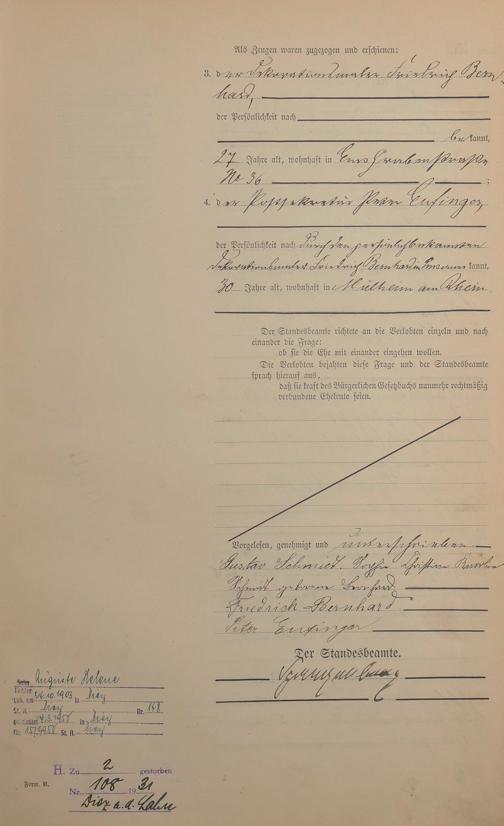 Als Zeugen waren zugezogen und erschienen:
3. der Dekorationsmaler Friedrich Bern-
hard,
der Persönlichkeit nach
be kannt,
27 Jahre alt, wohnhaft in Ems Grabenstraße
No 36 ;
4. der Postsekretär Peter Enxinger,
der Persönlichkeit nach durch den persönlich bekannten
Dekorationsmaler Friedrich Bernhard anerkannt,
30 Jahre alt, wohnhaft in Mülheim am Rhein
Der Standesbeamte richtete an die Verlobten einzeln und nach
einander die Frage:
ob sie die Ehe mit einander eingehen wollen.
Die Verlobten bejahten diese Frage und der Standesbeamte
sprach hierauf aus,
daß sie kraft des Bürgerlichen Gesetzbuchs nunmehr rechtmäßig
verbundene Eheleute seien.
Vorgelesen, genehmigt und unterschrieben
Gustav Schmidt. Christine
Schmidt geborene Bernhard
Friedrich Bernhard
Peter Enxinger
Der Standesbeamte.
Auguste Helene
Tochter
geb. am 24.10.1903 in
St. A. Nr. 168
in
Nr. St. A.
H. Zu 2 gestorben
Form. H.
Nr. 108 1931
Diez a. d. Lahn